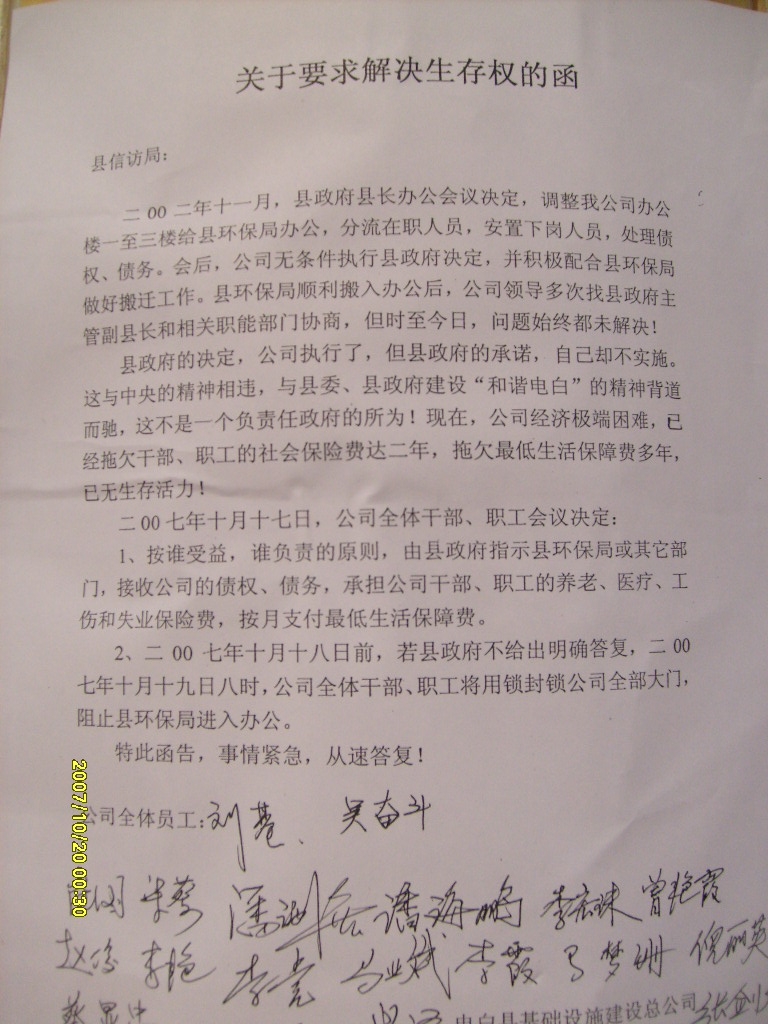 关于要求解决生存权的函
县信访局：
二00二年十一月，县政府县长办公会议决定，调整我公司办公
楼一至三楼给县环保局办公，分流在职人员，安置下岗人员，处理债
权、债务。会后，公司无条件执行县政府决定，并积极配合县环保局
做好搬迁工作。县环保局顺利搬入办公后，公司领导多次找县政府主
管副县长和相关职能部门协商，但时至今日，问题始终都未解决！
县政府的决定，公司执行了，但县政府的承诺，自己却不实施。
这与中央的精神相违，与县委、县政府建设“和谐电白”的精神背道
而驰，这不是一个负责任政府的所为！现在，公司经济极端困难，已
经拖欠干部、职工的社会保险费达二年，拖欠最低生活保障费多年，
已无生存活力！
二00七年十月十七日，公司全体干部、职工会议决定：
1、按谁受益，谁负责的原则，由县政府指示县环保局或其它部
门，接收公司的债权、债务，承担公司干部、职工的养老、医疗、工
伤和失业保险费，按月支付最低生活保障费。
2、二00七年十月十八日前，若县政府不给出明确答复，二00
七年十月十九日八时，公司全体干部、职工将用锁封锁公司全部大门，
阻止县环保局进入办公。
特此函告，事情紧急，从速答复！
公司全体员工：刘 吴奋斗
潘海鹏 李宏珠 曾艳霞
李艳 李亮 马业斌 李霞 马梦珊 倪丽英
蔡显忠 电白县基础设施建设总公司
2007/10/20 00:30